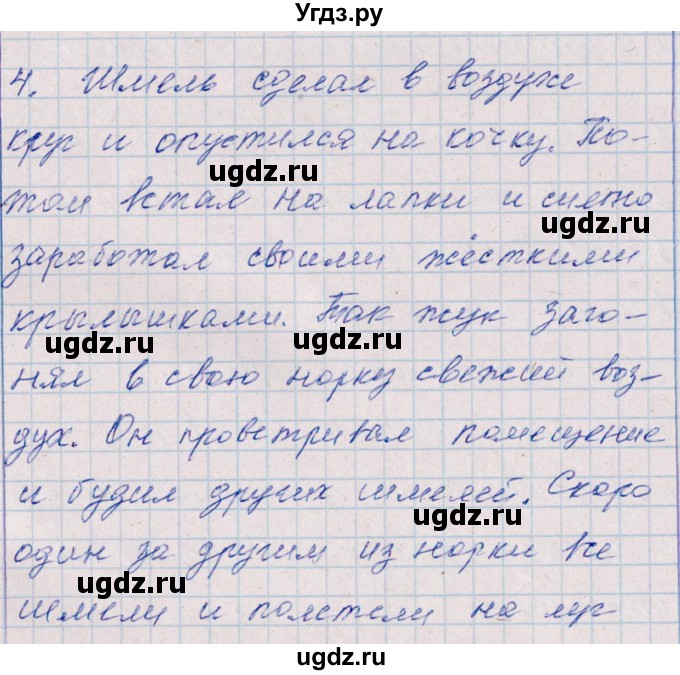 Угдз.ру
4. Шмель сделал в воздухе
круг и опустился на кочку. По-
том встал на лапки и сильно
заработал своими жёсткими
крылышками. Так жук заго-
нял в свою норку свежий воз-
дух. Он проветривал помещение
и будил других шмелей. Скоро
один за другим из норки все
шмели и полетели на луг
ugdz.ru
ugdz.ru
ugdz.ru
ugdz.ru
ugdz.ru
ugdz.ru
ugdz.ru
ugdz.ru
ugdz.ru
ugdz.ru